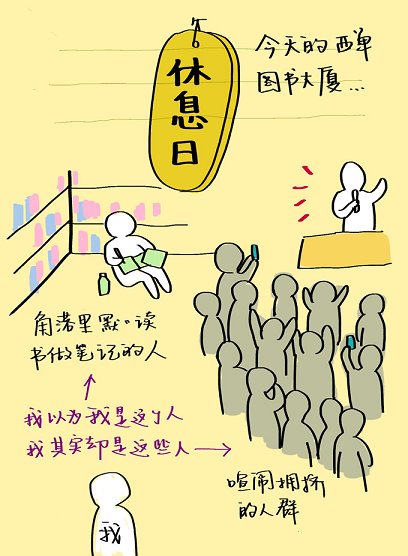 休息日
今天的西单
图书大厦...
角落里默默读
书做笔记的人
我以为我是这个人
我其实却是这些人
喧闹拥挤
的人群
我